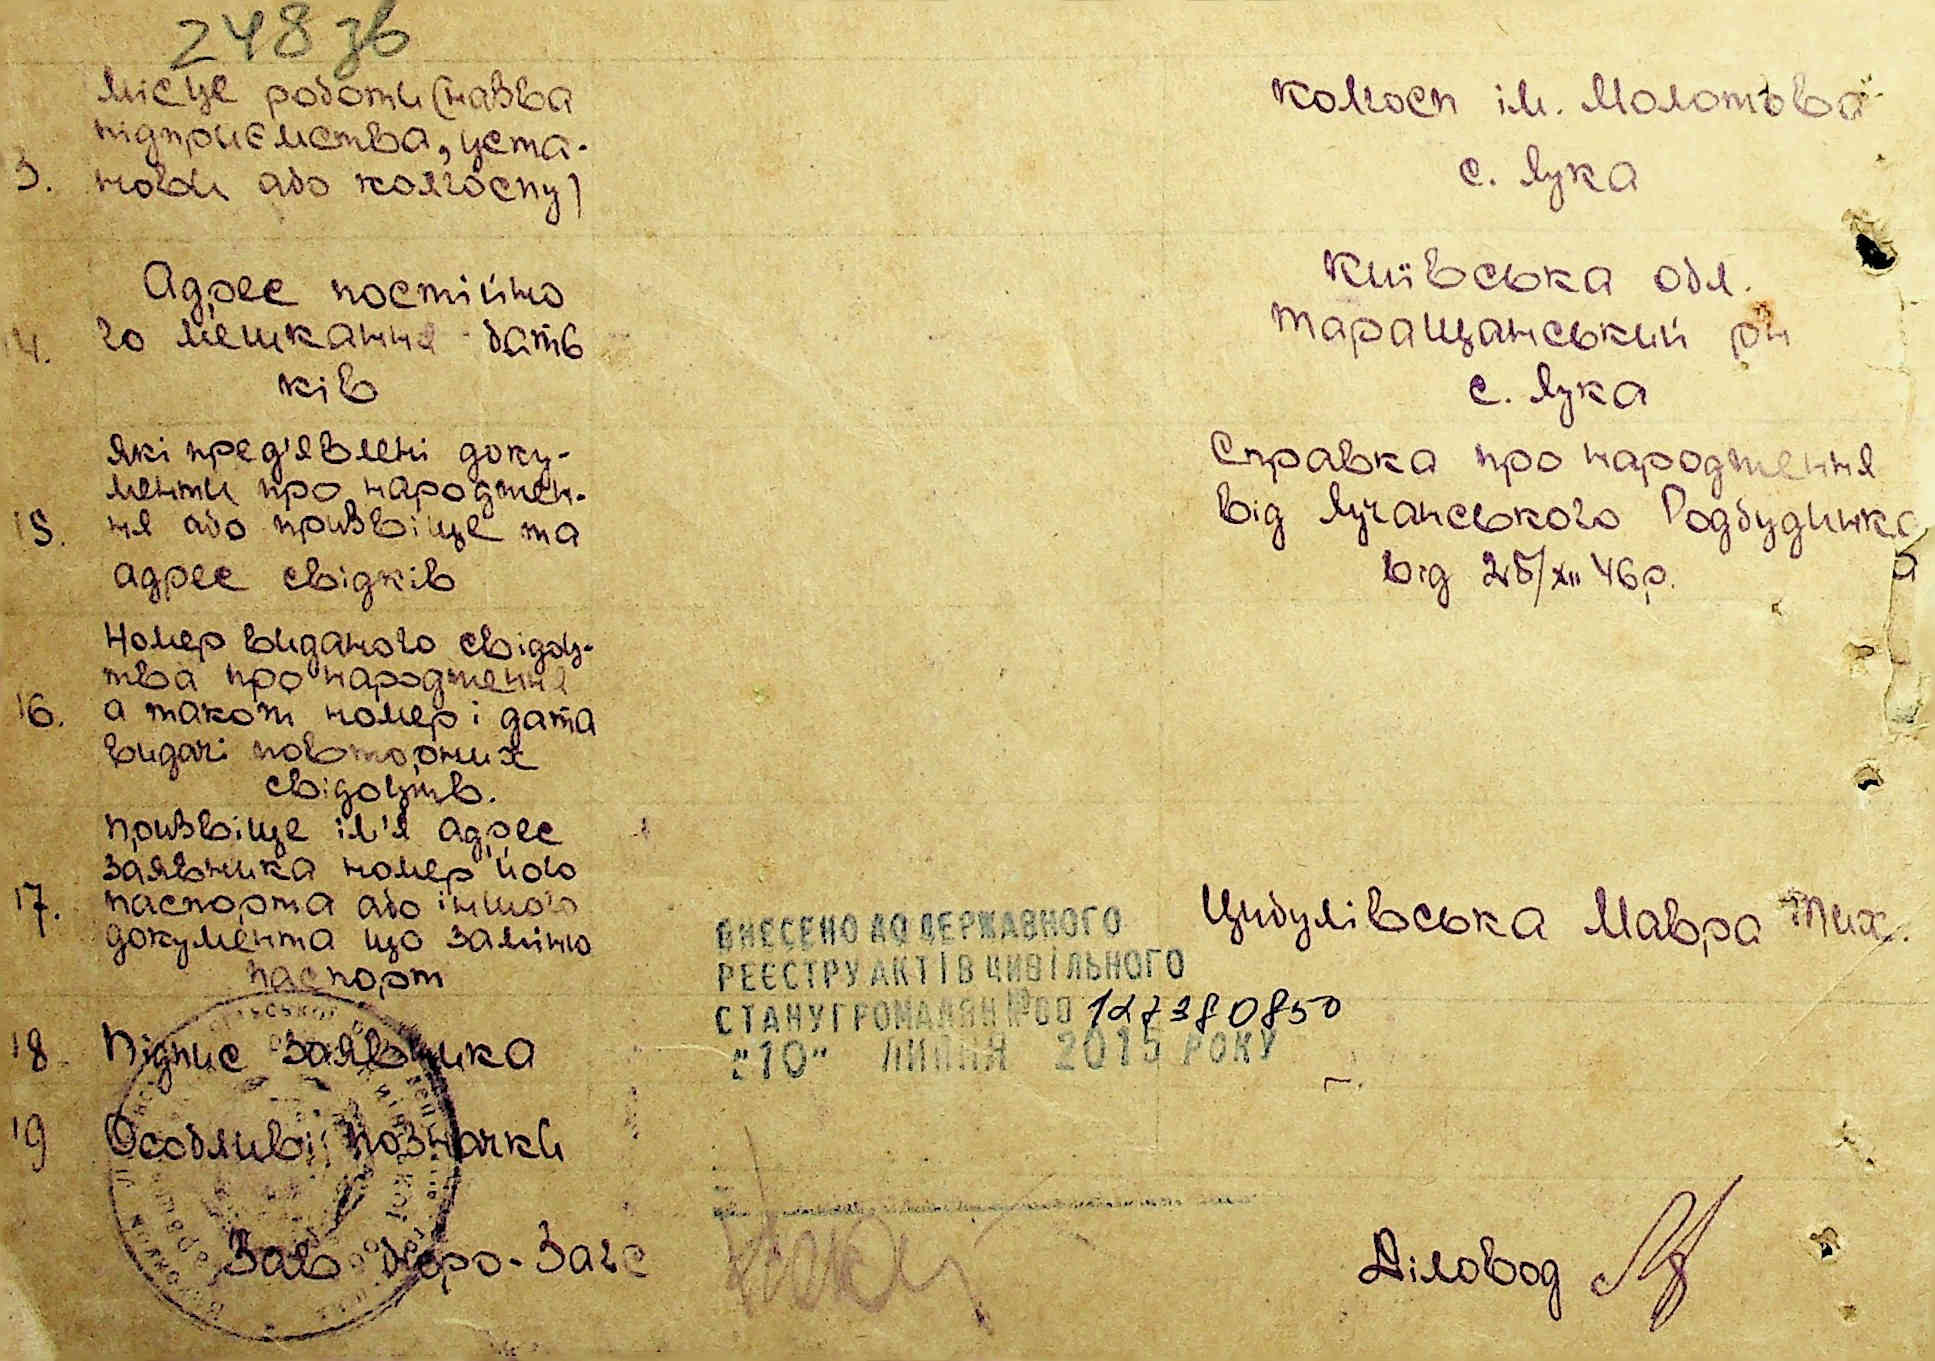 248 зв
Місце роботи (назва
підприємства, уста-
3. нови або колгоспу)
колгосп ім. Молотова
с. Лука
Адрес постійно
14. го мешкання бать
ків
Київська обл.
Таращанський рн
с. Лука
Які пред'явлені доку-
менти про народжен-
15. ня або призвіще та
адрес свідків
Справка про народження
від Лучанського Родбудинка
від 25/XII 46 р.
Номер виданого свідоц-
тва про народження
16. а також номер і дата
видачі повторних
свідоцтв.
Призвіще ім'я адрес
заявника номер його
17. паспорта або іншого
документа що заміню
паспорт
Цибулівська Мавра Тих.
ВНЕСЕНО ДО ДЕРЖАВНОГО
РЕЄСТРУ АКТІВ ЦИВІЛЬНОГО
СТАНУ ГРОМАДЯН №00 127380850
"10" ЛИПНЯ 2015 РОКУ
18 Підпис Заявника
19 Особливі позначки
Зав бюро-Загс
Діловод